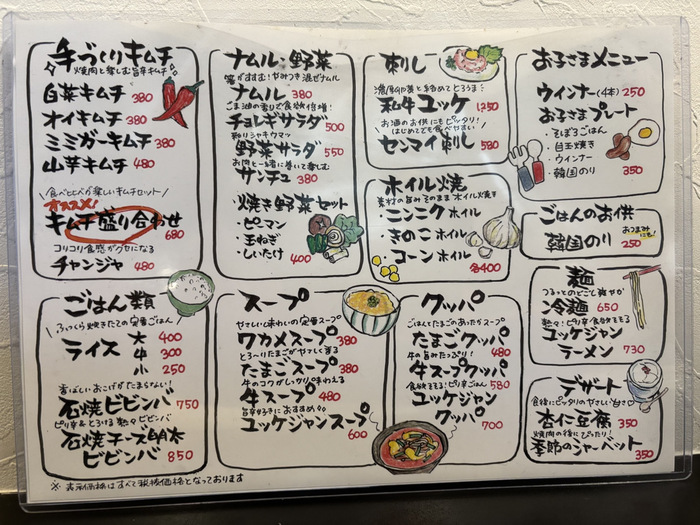 手づくりキムチ
焼肉と楽しむ旨辛キムチ
白菜キムチ 380
オイキムチ 380
ミミガーキムチ 380
山芋キムチ 480
食べ比べが楽しいキムチセット
オススメ!
キムチ盛り合わせ
680
コリコリ食感がクセになる
チャンジャ 480
ナムル・野菜
箸がすすむ!やみつき混ぜナムル
ナムル 380
ごま油の香りで食欲倍増!
チョレギサラダ
500
和りシャキウマッ
野菜サラダ
550
お肉と一緒に巻いて楽しむ
サンチュ 380
・焼き野菜セット
・ピーマン
・玉ねぎ
・しいたけ 400
刺し
和牛ユッケ 1250
お酒のお供にもピッタリ!
はじめてでも食べやすい
センマイ刺し 580
ホイル焼
素材の旨みそのまま ホイル焼き
・ニンニクホイル
・きのこホイル
・コーンホイル
各400
お子さまメニュー
ウインナー(4本) 250
お子さまプレート
・そぼろごはん
・目玉焼き
・ウインナー
・韓国のり 350
ごはんのお供
おつまみにも!
韓国のり 250
麺
つるっとのどごし爽やか
冷麺 650
ピリ辛食欲そそる
ユッケジャン
ラーメン 730
デザート
食後にピッタリのやさしい甘さ
杏仁豆腐 350
焼肉の後にぴったり!
季節のシャーベット
350
ごはん類
ふっくら炊きたての定番ごはん
ライス 大 400
中 300
小 250
香ばしいおこげがたまらない
石焼ビビンバ 750
ピリ辛&とろける 熱々ビビンバ
石焼チーズ明太
ビビンバ 850
スープ
やさしい味わいの定番スープ
ワカメスープ 380
とろ〜りたまごがやさしく香る
たまごスープ 380
牛のコクがしっかり味わえる
牛スープ 480
旨辛好きにおすすめ
ユッケジャンスープ
600
クッパ
ごはんとたまごのあったかスープ
たまごクッパ 480
牛の旨みたっぷり!
牛スープクッパ 580
食欲そそる!ピリ辛ごはん
ユッケジャン
クッパ 700
※表示価格はすべて税抜価格となっております